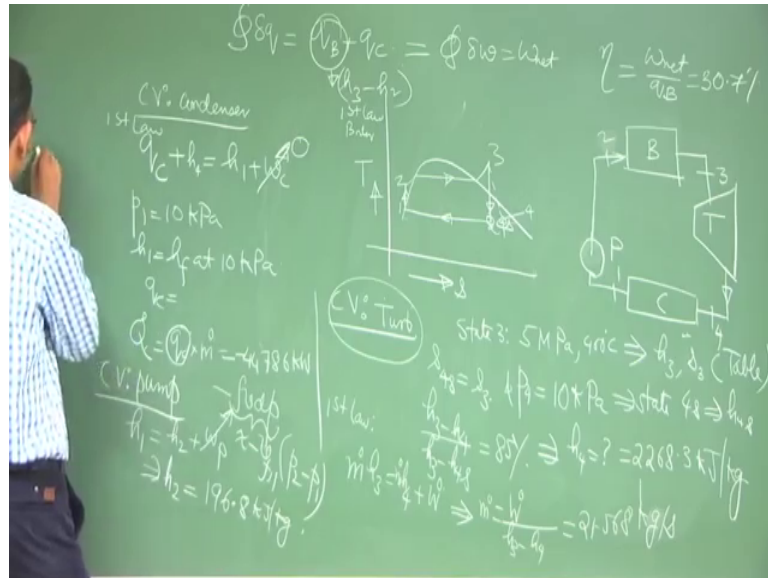 ∮δq = q_B + q_C = ∮δw = w_net
(h₃-h₂)
1st Law
η = w_net/q_B = 30.7%
C∀: Condenser
1st Law
q_C + h₄ = h₁ + w_C → 0
p₁ = 10 kPa
h₁ = h_f at 10 kPa
q_C =
Q̇ = q × ṁ = -44786 kW
C∀: pump
h₁ = h₂ + w_p
-∫vdp
v₁(p₂-p₁)
⇒ h₂ = 196.8 kJ/kg
T
s
1
2
3
4
4s
2
B
3
T
P
1
C
4
C∀: Turb
State 3: 5 MPa, 40°C ⇒ h₃, s₃ (Table)
s₄s = s₃ & p₄ = 10 kPa ⇒ state 4s ⇒ h₄s
h₃-h₄/h₃-h₄s = 85% ⇒ h₄ = ? = 2268.3 kJ/kg
1st Law:
ṁh₃ = ṁh₄ + Ẇ ⇒ ṁ = Ẇ/h₃-h₄ = 21.568 kg/s